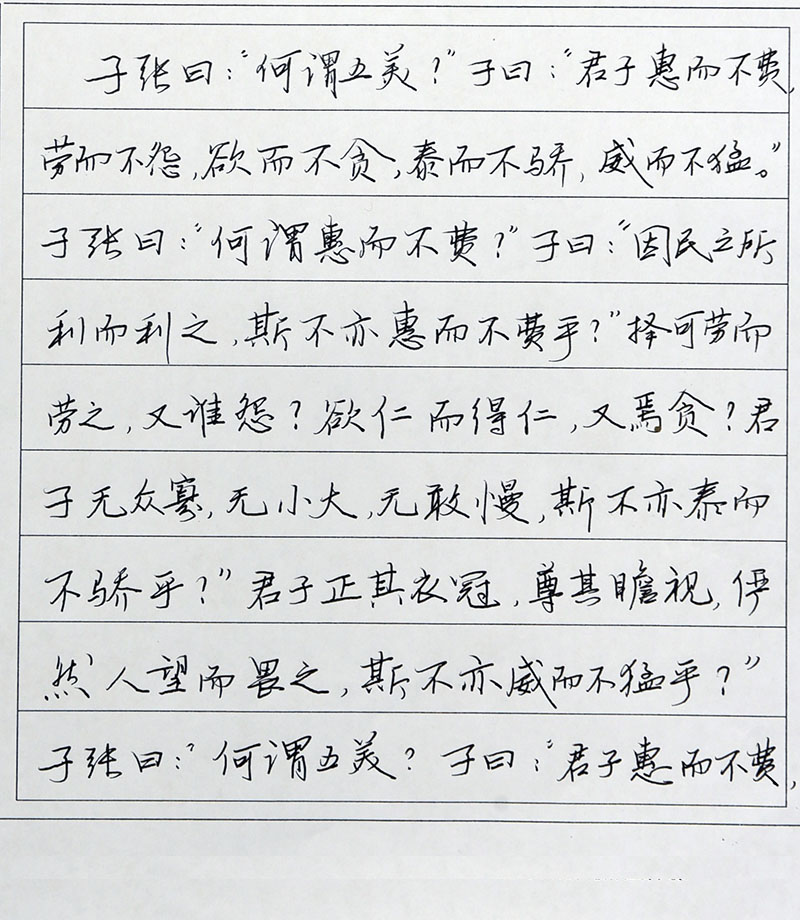 子张曰：“何谓五美？”子曰：“君子惠而不费，
劳而不怨，欲而不贪，泰而不骄，威而不猛。”
子张曰：“何谓惠而不费？”子曰：“因民之所
利而利之，斯不亦惠而不费乎？”择可劳而
劳之，又谁怨？欲仁而得仁，又焉贪？君
子无众寡，无小大，无敢慢，斯不亦泰而
不骄乎？”君子正其衣冠，尊其瞻视，俨
然人望而畏之，斯不亦威而不猛乎？”
子张曰：“何谓五美？子曰：“君子惠而不费，